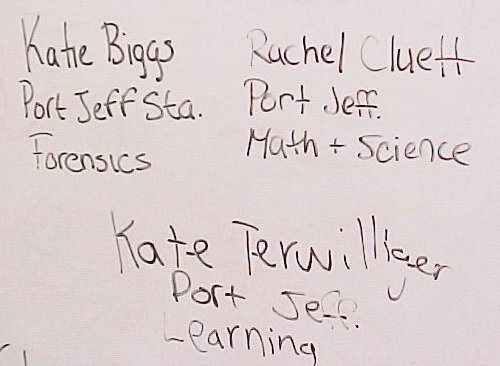 Katie Biggs
Port Jeff Sta.
Forensics
Rachel Cluett
Port Jeff.
Math + Science
Kate Terwilliger
Port Jeff.
Learning